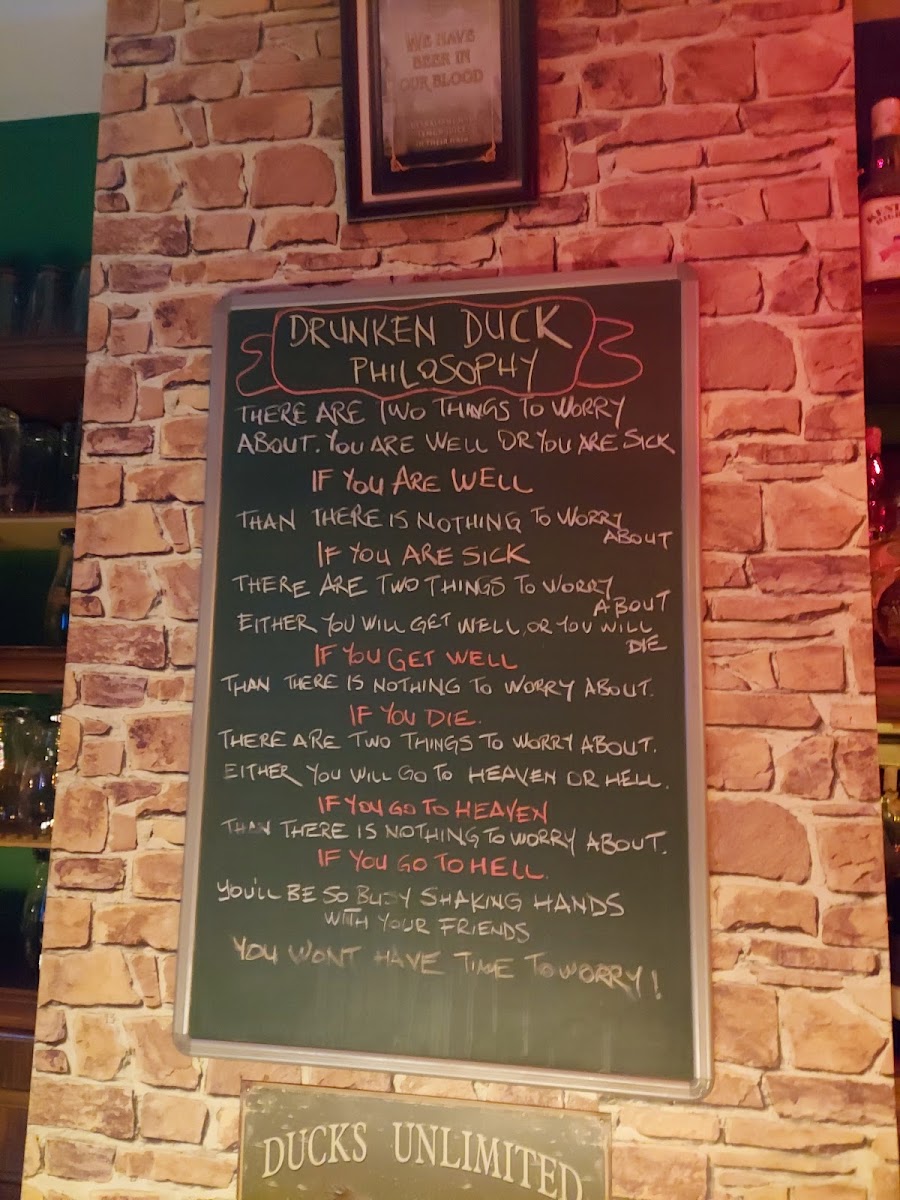 WE HAVE
BEER IN
OUR BLOOD
DRUNKEN DUCK
PHILOSOPHY
THERE ARE TWO THINGS TO WORRY
ABOUT. YOU ARE WELL OR YOU ARE SICK
IF YOU ARE WELL
THAN THERE IS NOTHING TO WORRY
ABOUT
IF YOU ARE SICK
THERE ARE TWO THINGS TO WORRY
ABOUT
EITHER YOU WILL GET WELL, OR YOU WILL
DIE
IF YOU GET WELL
THAN THERE IS NOTHING TO WORRY ABOUT.
IF YOU DIE.
THERE ARE TWO THINGS TO WORRY ABOUT.
EITHER YOU WILL GO TO HEAVEN OR HELL.
IF YOU GO TO HEAVEN
THAN THERE IS NOTHING TO WORRY ABOUT.
IF YOU GO TO HELL.
YOU'LL BE SO BUSY SHAKING HANDS
WITH YOUR FRIENDS
YOU WONT HAVE TIME TO WORRY!
DUCKS UNLIMITED